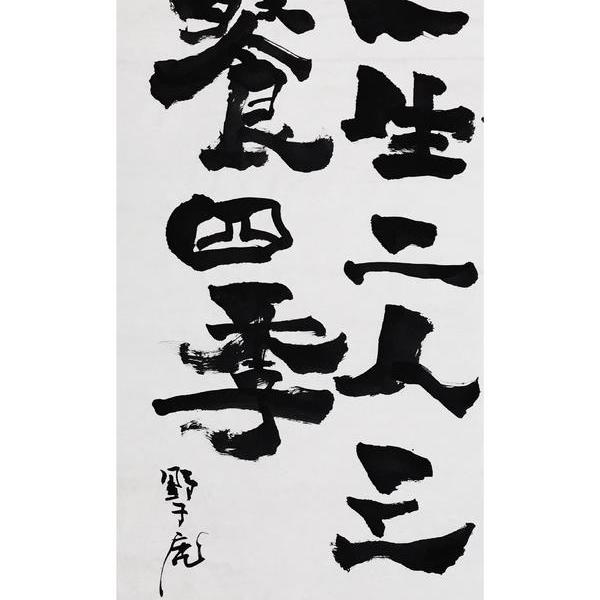 一生二人三
餐四季
野彪